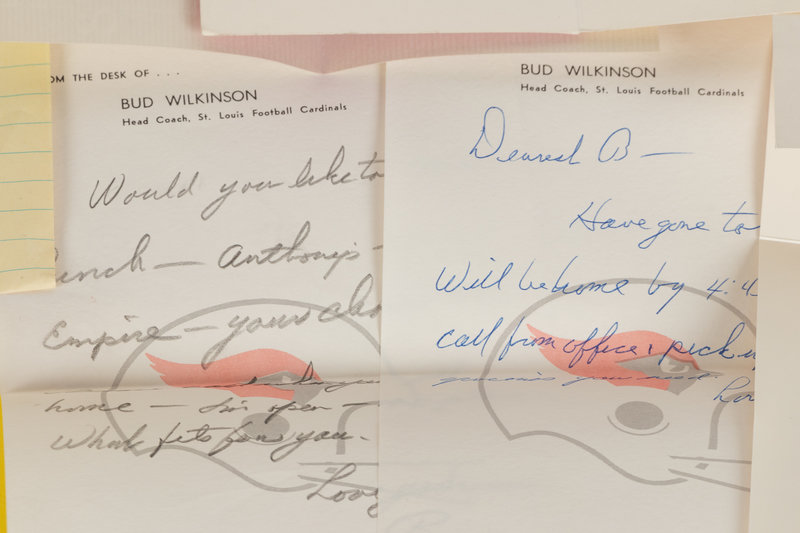 OM THE DESK OF . . .
BUD WILKINSON
Head Coach, St. Louis Football Cardinals
Would you like to
unch — Anthony's —
Empire — yours also
home — I'm open —
What fits for you.
Love
BUD WILKINSON
Head Coach, St. Louis Football Cardinals
Dearest B —
Have gone to
Will be home by 4:4
call from office & pick u
Lov